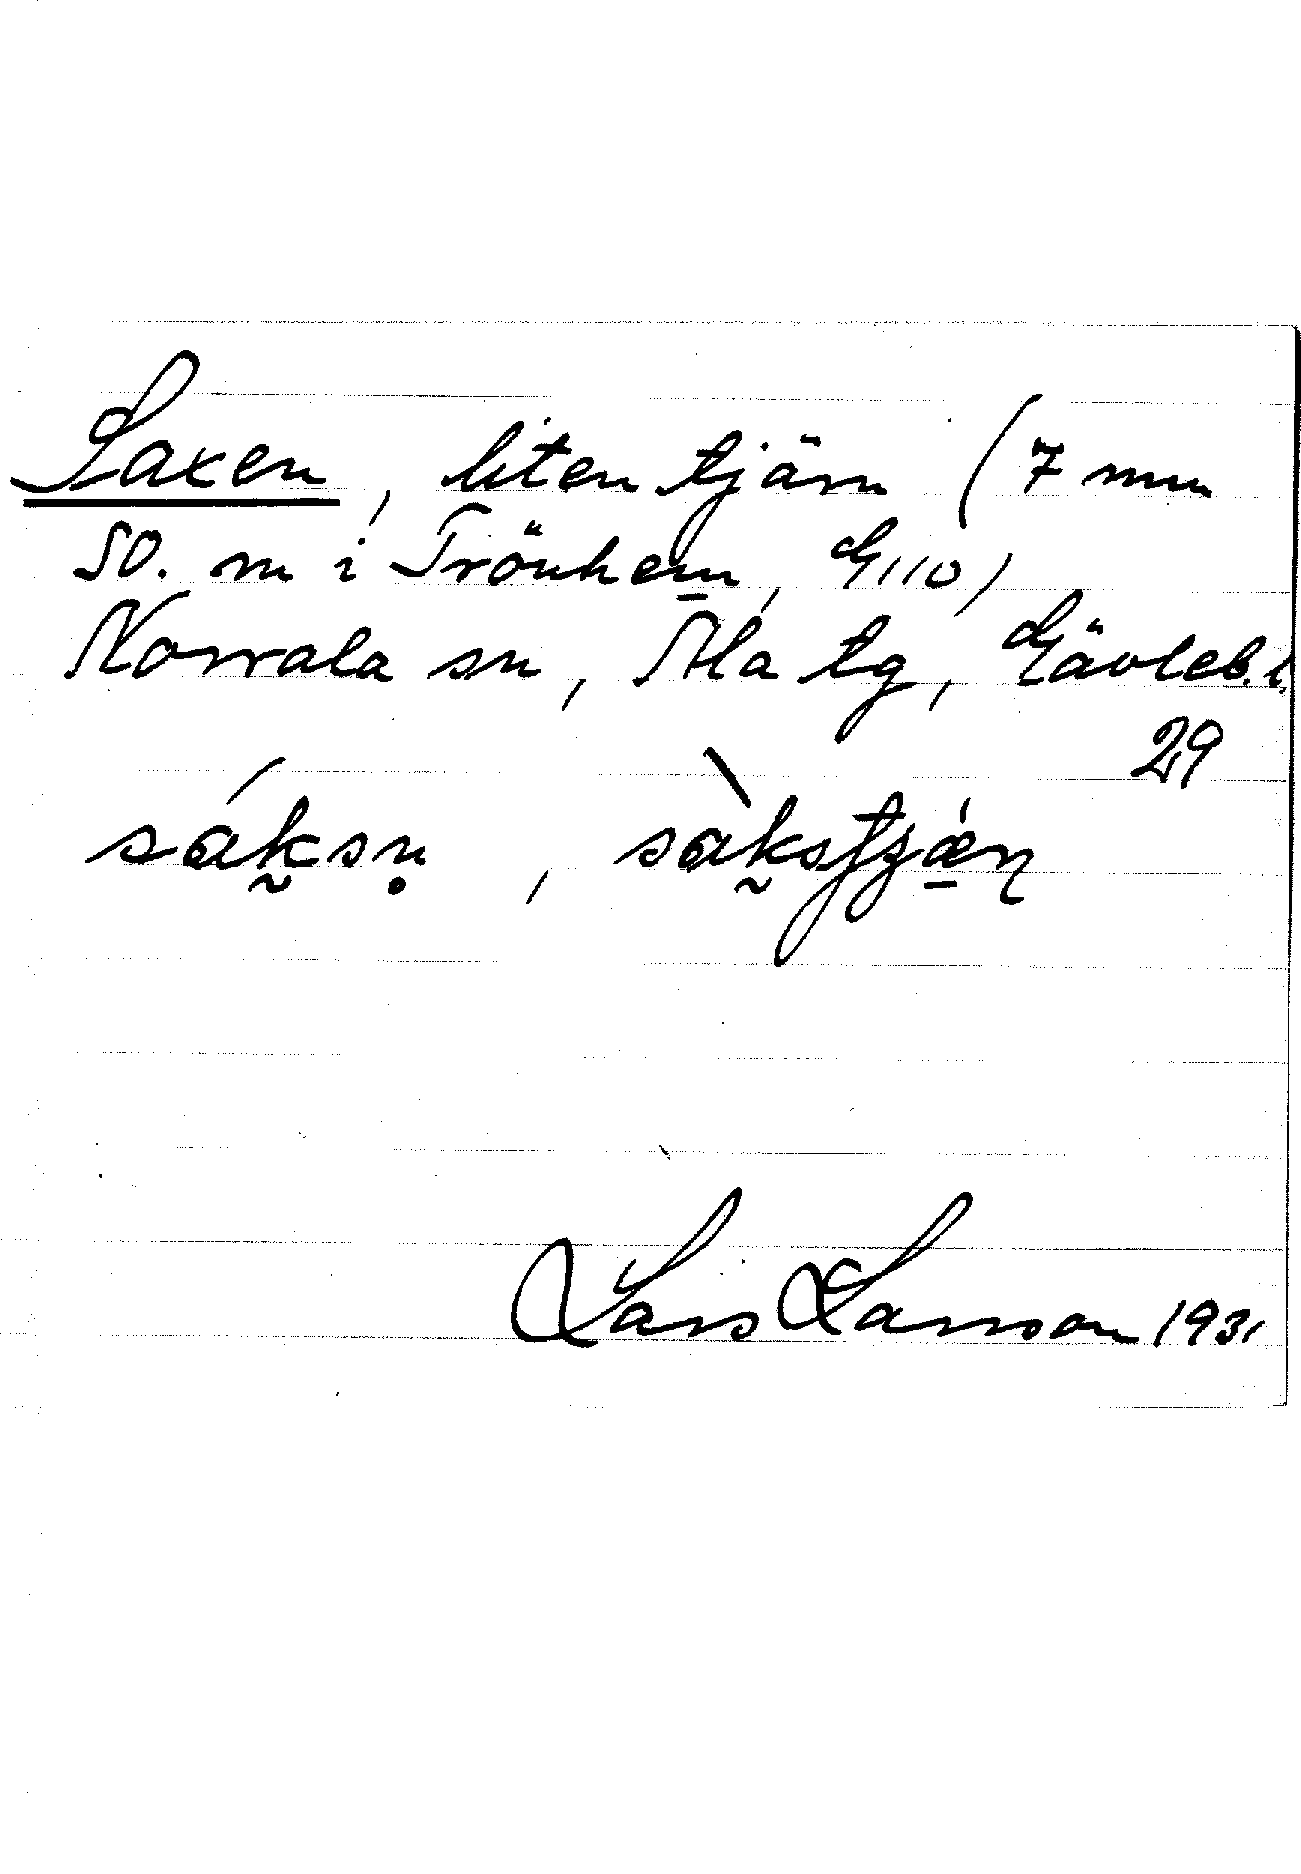 Saxen, liten tjärn (7 mm
SO. m i Trönhem, G 110)
Norrala sn, Ala tg, Gävleb. l.
29
sáksn̥, sàkstjæ̀n
Lars Larsson 1931